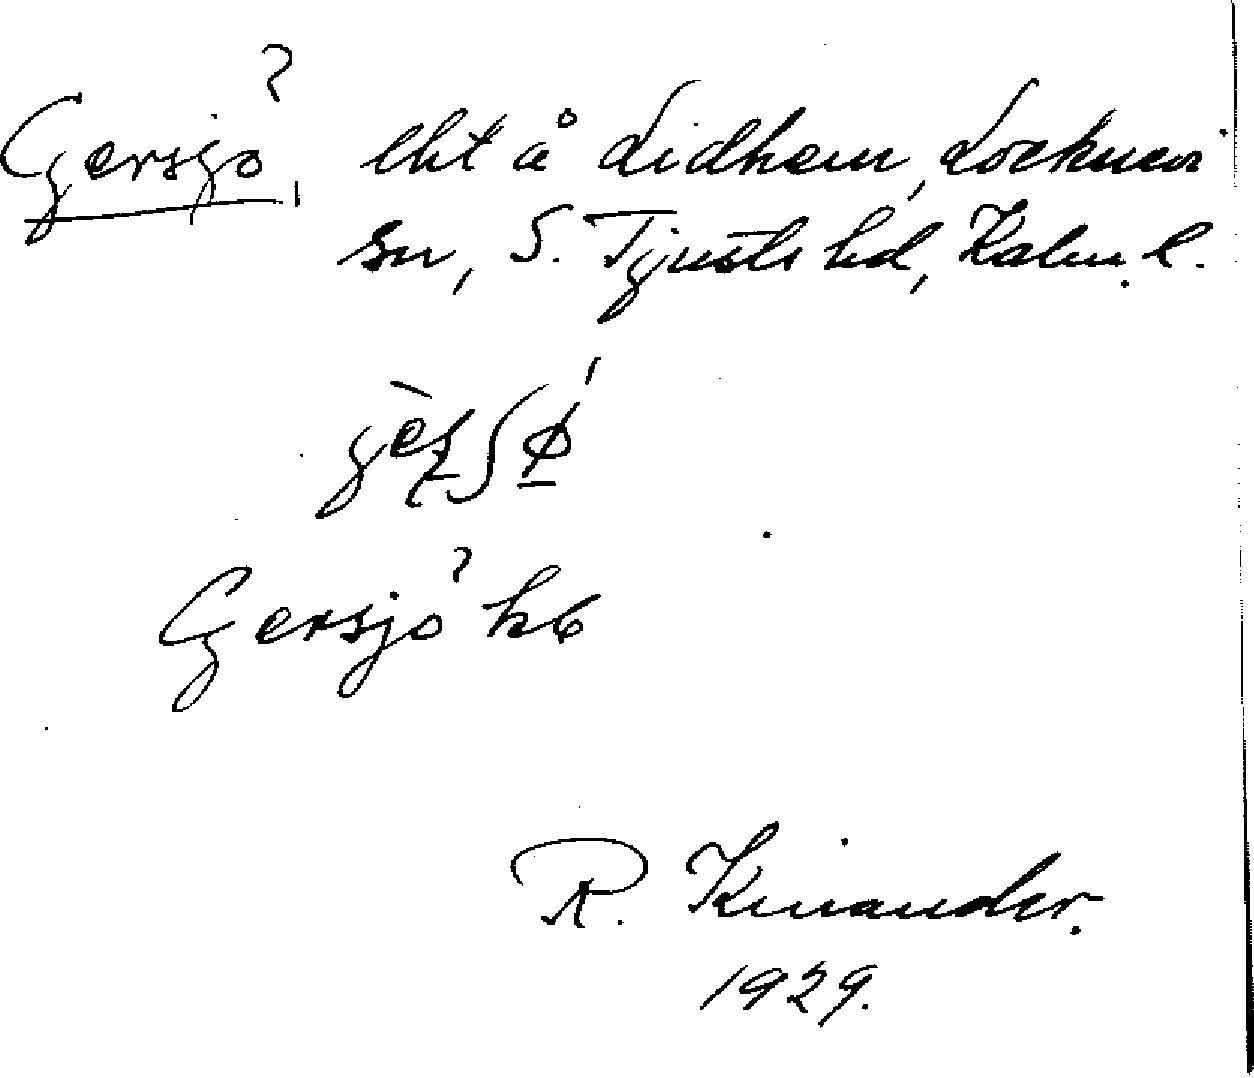 Gersjö, lht å Lidhem, Locknevi
sn, S. Tjusts hd, Kalm. l.
Gersjö kb
R. Kinander.
1929.